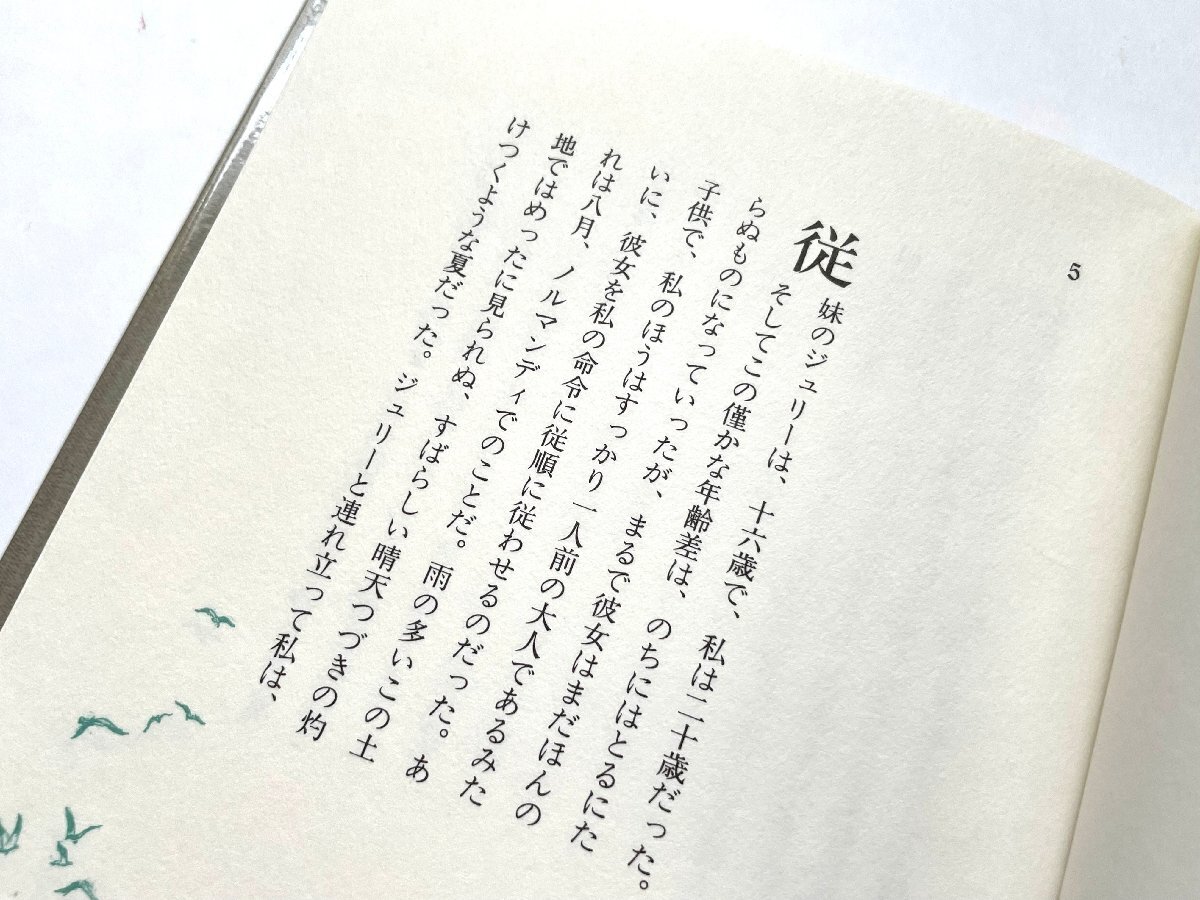 5
従妹のジュリーは、十六歳で、私は二十歳だった。
そしてこの僅かな年齢差は、のちにはとるにた
らぬものになっていったが、まるで彼女はまだほんの
子供で、私のほうはすっかり一人前の大人であるみた
いに、彼女を私の命令に従順に従わせるのだった。あ
れは八月、ノルマンディでのことだ。雨の多いこの土
地ではめったに見られぬ、すばらしい晴天つづきの灼
けつくような夏だった。ジュリーと連れ立って私は、